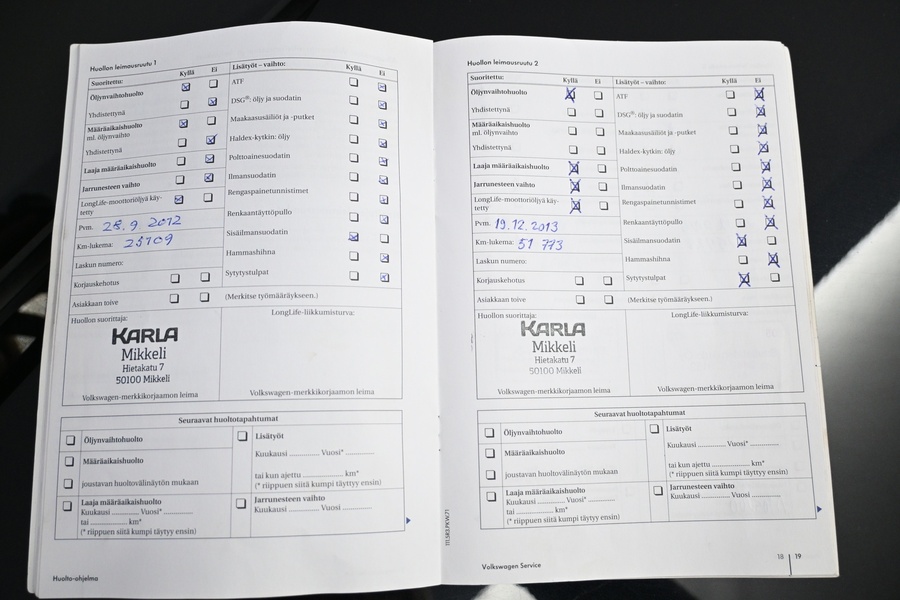 Huollon leimausruutu 1
Suoritettu: Kyllä Ei
Öljynvaihtohuolto
Yhdistettynä
Määräaikaishuolto
ml. öljynvaihto
Yhdistettynä
Laaja määräaikaishuolto
Jarrunesteen vaihto
LongLife-moottoriöljyä käy-
tetty
Pvm. 28.9 2012
Km-lukema: 25109
Laskun numero:
Korjauskehotus
Asiakkaan toive
Lisätyöt – vaihto: Kyllä Ei
ATF
DSG®: öljy ja suodatin
Maakaasusäiliöt ja -putket
Haldex-kytkin: öljy
Polttoainesuodatin
Ilmansuodatin
Rengaspainetunnistimet
Renkaantäyttöpullo
Sisäilmansuodatin
Hammashihna
Sytytystulpat
(Merkitse työmääräykseen.)
Huollon suorittaja:
KARLA
Mikkeli
Hietakatu 7
50100 Mikkeli
Volkswagen-merkkikorjaamon leima
LongLife-liikkumisturva:
Volkswagen-merkkikorjaamon leima
Seuraavat huoltotapahtumat
Öljynvaihtohuolto
Määräaikaishuolto
joustavan huoltovälinäytön mukaan
Laaja määräaikaishuolto
Kuukausi ............ Vuosi* ............
tai ............ km*
(* riippuen siitä kumpi täyttyy ensin)
Lisätyöt
Kuukausi ............ Vuosi* ............
tai kun ajettu ............ km*
(* riippuen siitä kumpi täyttyy ensin)
Jarrunesteen vaihto
Kuukausi ............ Vuosi ............
Huolto-ohjelma
Huollon leimausruutu 2
Suoritettu: Kyllä Ei
Öljynvaihtohuolto
Yhdistettynä
Määräaikaishuolto
ml. öljynvaihto
Yhdistettynä
Laaja määräaikaishuolto
Jarrunesteen vaihto
LongLife-moottoriöljyä käy-
tetty
Pvm. 19.12.2013
Km-lukema: 51 773
Laskun numero:
Korjauskehotus
Asiakkaan toive
Lisätyöt – vaihto: Kyllä Ei
ATF
DSG®: öljy ja suodatin
Maakaasusäiliöt ja -putket
Haldex-kytkin: öljy
Polttoainesuodatin
Ilmansuodatin
Rengaspainetunnistimet
Renkaantäyttöpullo
Sisäilmansuodatin
Hammashihna
Sytytystulpat
(Merkitse työmääräykseen.)
Huollon suorittaja:
KARLA
Mikkeli
Hietakatu 7
50100 Mikkeli
Volkswagen-merkkikorjaamon leima
LongLife-liikkumisturva:
Volkswagen-merkkikorjaamon leima
Seuraavat huoltotapahtumat
Öljynvaihtohuolto
Määräaikaishuolto
joustavan huoltovälinäytön mukaan
Laaja määräaikaishuolto
Kuukausi ............ Vuosi* ............
tai ............ km*
(* riippuen siitä kumpi täyttyy ensin)
Lisätyöt
Kuukausi ............ Vuosi* ............
tai kun ajettu ............ km*
(* riippuen siitä kumpi täyttyy ensin)
Jarrunesteen vaihto
Kuukausi ............ Vuosi ............
Volkswagen Service
18 19